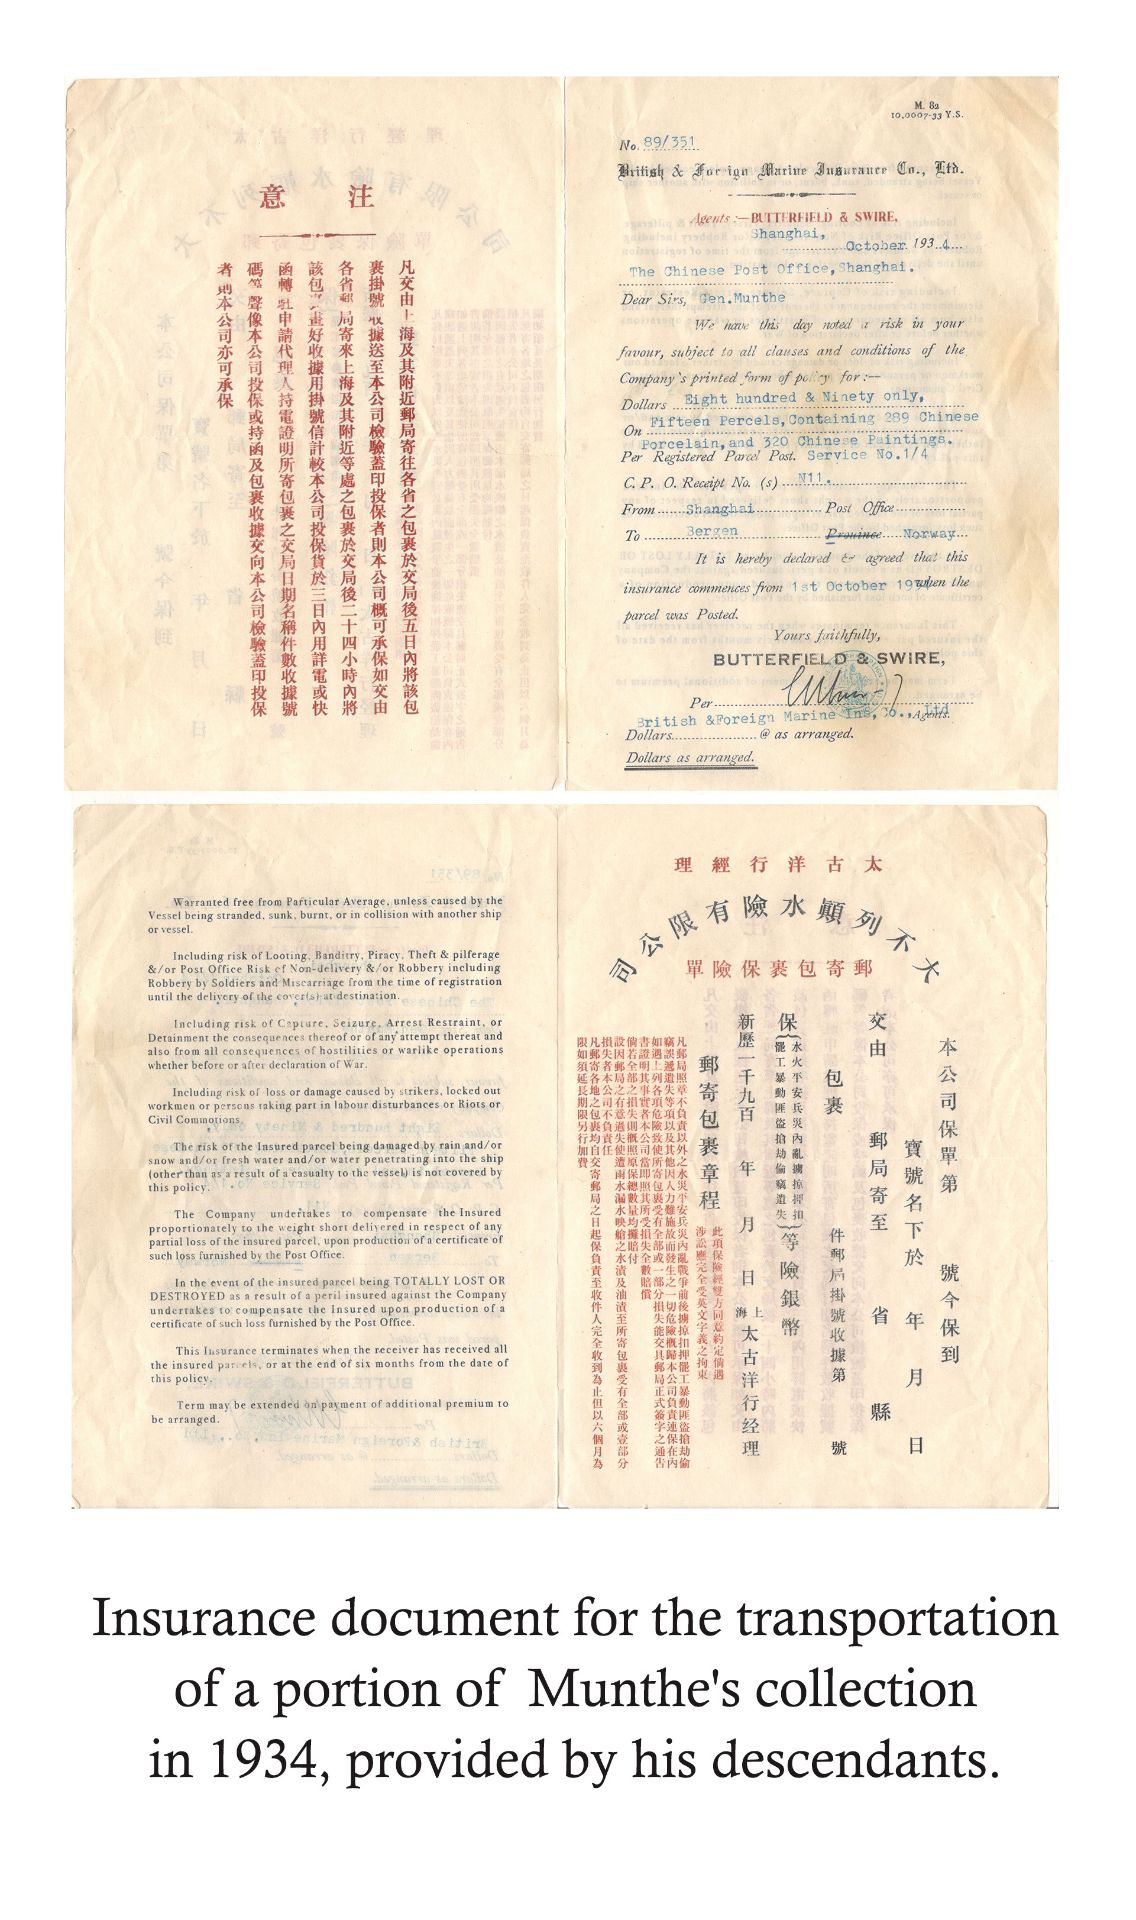 注意
凡交由上海及其附近郵局寄往各省之包裹於交局後五日內將該包
裹掛號收據送至本公司檢驗蓋印投保者則本公司概可承保如交由
各省郵局寄來上海及其附近等處之包裹於交局後二十四小時內將
該包畫好收據用掛號信計較本公司投保貨於三日內用詳電或快
函轉駐申請代理人持電證明所寄包裹之交局日期名稱件數收據號
碼等聲像本公司投保或持函及包裹收據交向本公司檢驗蓋印投保
者則本公司亦可承保
M. 82
10,0007-33 Y.S.
No. 89/351
British & Foreign Marine Insurance Co., Ltd.
Agents:—BUTTERFIELD & SWIRE,
Shanghai,
October 1934
The Chinese Post Office, Shanghai.
Dear Sirs, Gen.Munthe
We have this day noted a risk in your
favour, subject to all clauses and conditions of the
Company's printed form of policy for:—
Dollars Eight hundred & Ninety only,
On Fifteen Percels, Containing 289 Chinese
Porcelain, and 320 Chinese Paintings.
Per Registered Parcel Post. Service No.1/4
C. P. O. Receipt No. (s) N11.
From Shanghai Post Office
To Bergen Province Norway
It is hereby declared & agreed that this
insurance commences from 1st October 1934 when the
parcel was Posted.
Yours faithfully,
BUTTERFIELD & SWIRE,
Per
British &Foreign Marine Ins, Co., Ltd Agents.
Dollars @ as arranged.
Dollars as arranged.
Warranted free from Particular Average, unless caused by the
Vessel being stranded, sunk, burnt, or in collision with another ship
or vessel.
Including risk of Looting, Banditry, Piracy, Theft & pilferage
&/or Post Office Risk of Non-delivery &/or Robbery including
Robbery by Soldiers and Miscarriage from the time of registration
until the delivery of the cover(s) at destination.
Including risk of Capture, Seizure, Arrest Restraint, or
Detainment the consequences thereof or of any attempt thereat and
also from all consequences of hostilities or warlike operations
whether before or after declaration of War.
Including risk of loss or damage caused by strikers, locked out
workmen or persons taking part in labour disturbances or Riots or
Civil Commotions.
The risk of the Insured parcel being damaged by rain and/or
snow and/or fresh water and/or water penetrating into the ship
(other than as a result of a casualty to the vessel) is not covered by
this policy.
The Company undertakes to compensate the Insured
proportionately to the weight short delivered in respect of any
partial loss of the insured parcel, upon production of a certificate of
such loss furnished by the Post Office.
In the event of the insured parcel being TOTALLY LOST OR
DESTROYED as a result of a peril insured against the Company
undertakes to compensate the Insured upon production of a
certificate of such loss furnished by the Post Office.
This Insurance terminates when the receiver has received all
the insured parcels, or at the end of six months from the date of
this policy.
Term may be extended on payment of additional premium to
be arranged.
太古洋行經理
大不列顛水險有限公司
郵寄包裹保險單
本公司保單第 號今保到
寶號名下於 年 月 日
交由 郵局寄至 省 縣
包裹 件郵局掛號收據第 號
保(水火平安兵災內亂擄掠押扣
罷工暴動匪盜搶劫偷竊遺失)等險銀幣
新歷一千九百 年 月 日 上海太古洋行经理
郵寄包裹章程
此項保險經雙方同意約定倘遇
涉訟應完全受英文字義之拘束
凡郵局照章不負責以外之水災平安兵災內亂戰爭前後擄掠扣押罷工暴動匪盜搶劫偷
竊誤遞遺失等項以及其他因人力難施故而發生之一切危險概歸本公司負責連保在內
如遇上列各項危險致使所寄包裹受有全部或一部分損失能交具郵局正式簽字之通告
書證明其事實者本公司當即照其所受損失全數賠償
倘若全部之損失則概照原保總數量均攤賠付
設因郵局之有意過失使遭雨水漏水映艙之水漬及油漬至所寄包裹受有全部或壹部分
損失者本公司不負責任
凡郵寄各地之包裹均自交寄郵局之日起保負責至收件人完全收到為止但以六個月為
限如須延長期限另行加費
Insurance document for the transportation
of a portion of Munthe's collection
in 1934, provided by his descendants.